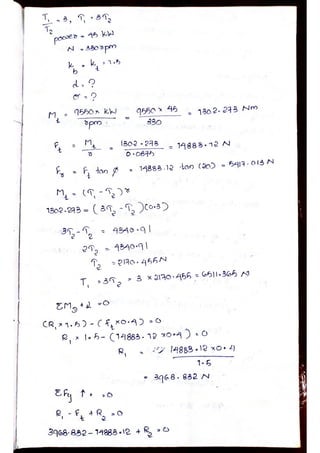 T₁/T₂ = 3, T₁ = 3T₂
power = 45 kW
N = 330 rpm
k_b = k_t = 1.5
d = ?
σ = ?
M_t = 9550 × kW / rpm = 9550 × 45 / 330 = 1302.273 Nm
F_t = M_t / r = 1302.273 / 0.0875 = 14883.12 N
F_r = F_t tan φ = 14883.12 tan (20) = 5417.013 N
M_t = (T₁ - T₂) r
1302.273 = (3T₂ - T₂)(0.3)
3T₂ - T₂ = 4340.91
2T₂ = 4340.91
T₂ = 2170.455 N
T₁ = 3T₂ = 3 × 2170.455 = 6511.365 N
ΣM₂ + = 0
(R₁ × 1.5) - (F_t × 0.4) = 0
R₁ × 1.5 - (14883.12 × 0.4) = 0
R₁ = 14883.12 × 0.4 / 1.5
= 3968.832 N
ΣFy ↑ + = 0
R₁ - F_t + R₂ = 0
3968.832 - 14883.12 + R₂ = 0